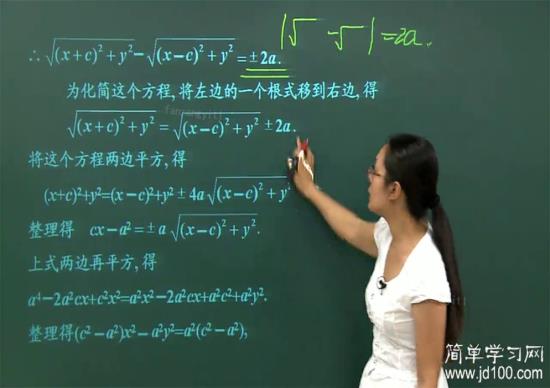 ∴ √((x+c)²+y²)−√((x−c)²+y²)=±2a.
|√ −√ |=2a.
为化简这个方程,将左边的一个根式移到右边,得
√((x+c)²+y²)=√((x−c)²+y²)±2a.
将这个方程两边平方,得
(x+c)²+y²=(x−c)²+y²±4a√((x−c)²+y²
整理得 cx−a²=±a√((x−c)²+y².
上式两边再平方,得
a⁴−2a²cx+c²x²=a²x²−2a²cx+a²c²+a²y².
整理得(c²−a²)x²−a²y²=a²(c²−a²),
简单学习网
www.jd100.com